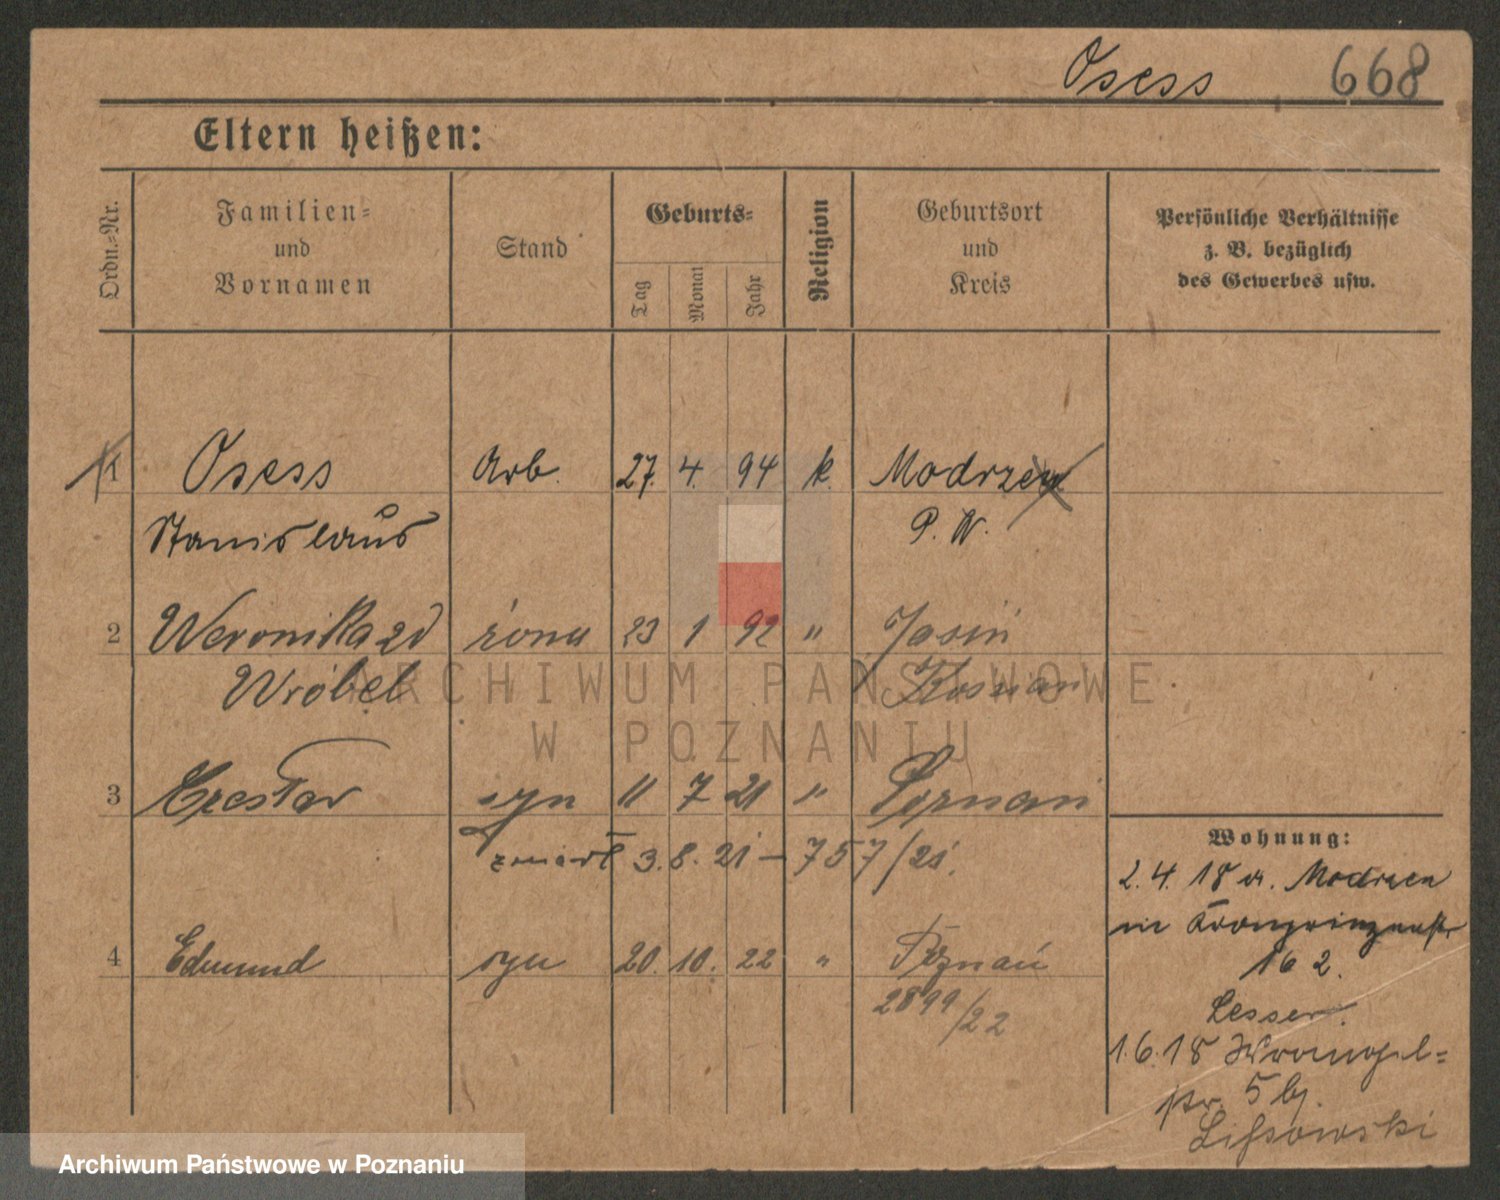 Osess 668
Eltern heißen:
Ordn.-Nr.
Familien- und Vornamen
Stand
Geburts-
Tag
Monat
Jahr
Religion
Geburtsort und Kreis
Persönliche Verhältnisse
z. B. bezüglich
des Gewerbes usw.
1 Osess Arb. 27. 4. 94 k. Modrzen
Stanislaus P. W.
2 Weronika zd żona 23 1 92 " Jasin
Wróbel
ARCHIWUM PAŃSTWOWE
W POZNANIU
3 Czesław syn 11 7 21 " Poznań
zmarł 3. 8. 21 – 757/21.
4 Edmund syn 20. 10. 22 " Poznań
2899/22
Wohnung:
2. 4. 18 a. Modrzen
in Kronprinzenstr
16 2.
Lesser.
1. 6. 18 Wrangel-
str. 5 bj.
Lissowski
Archiwum Państwowe w Poznaniu